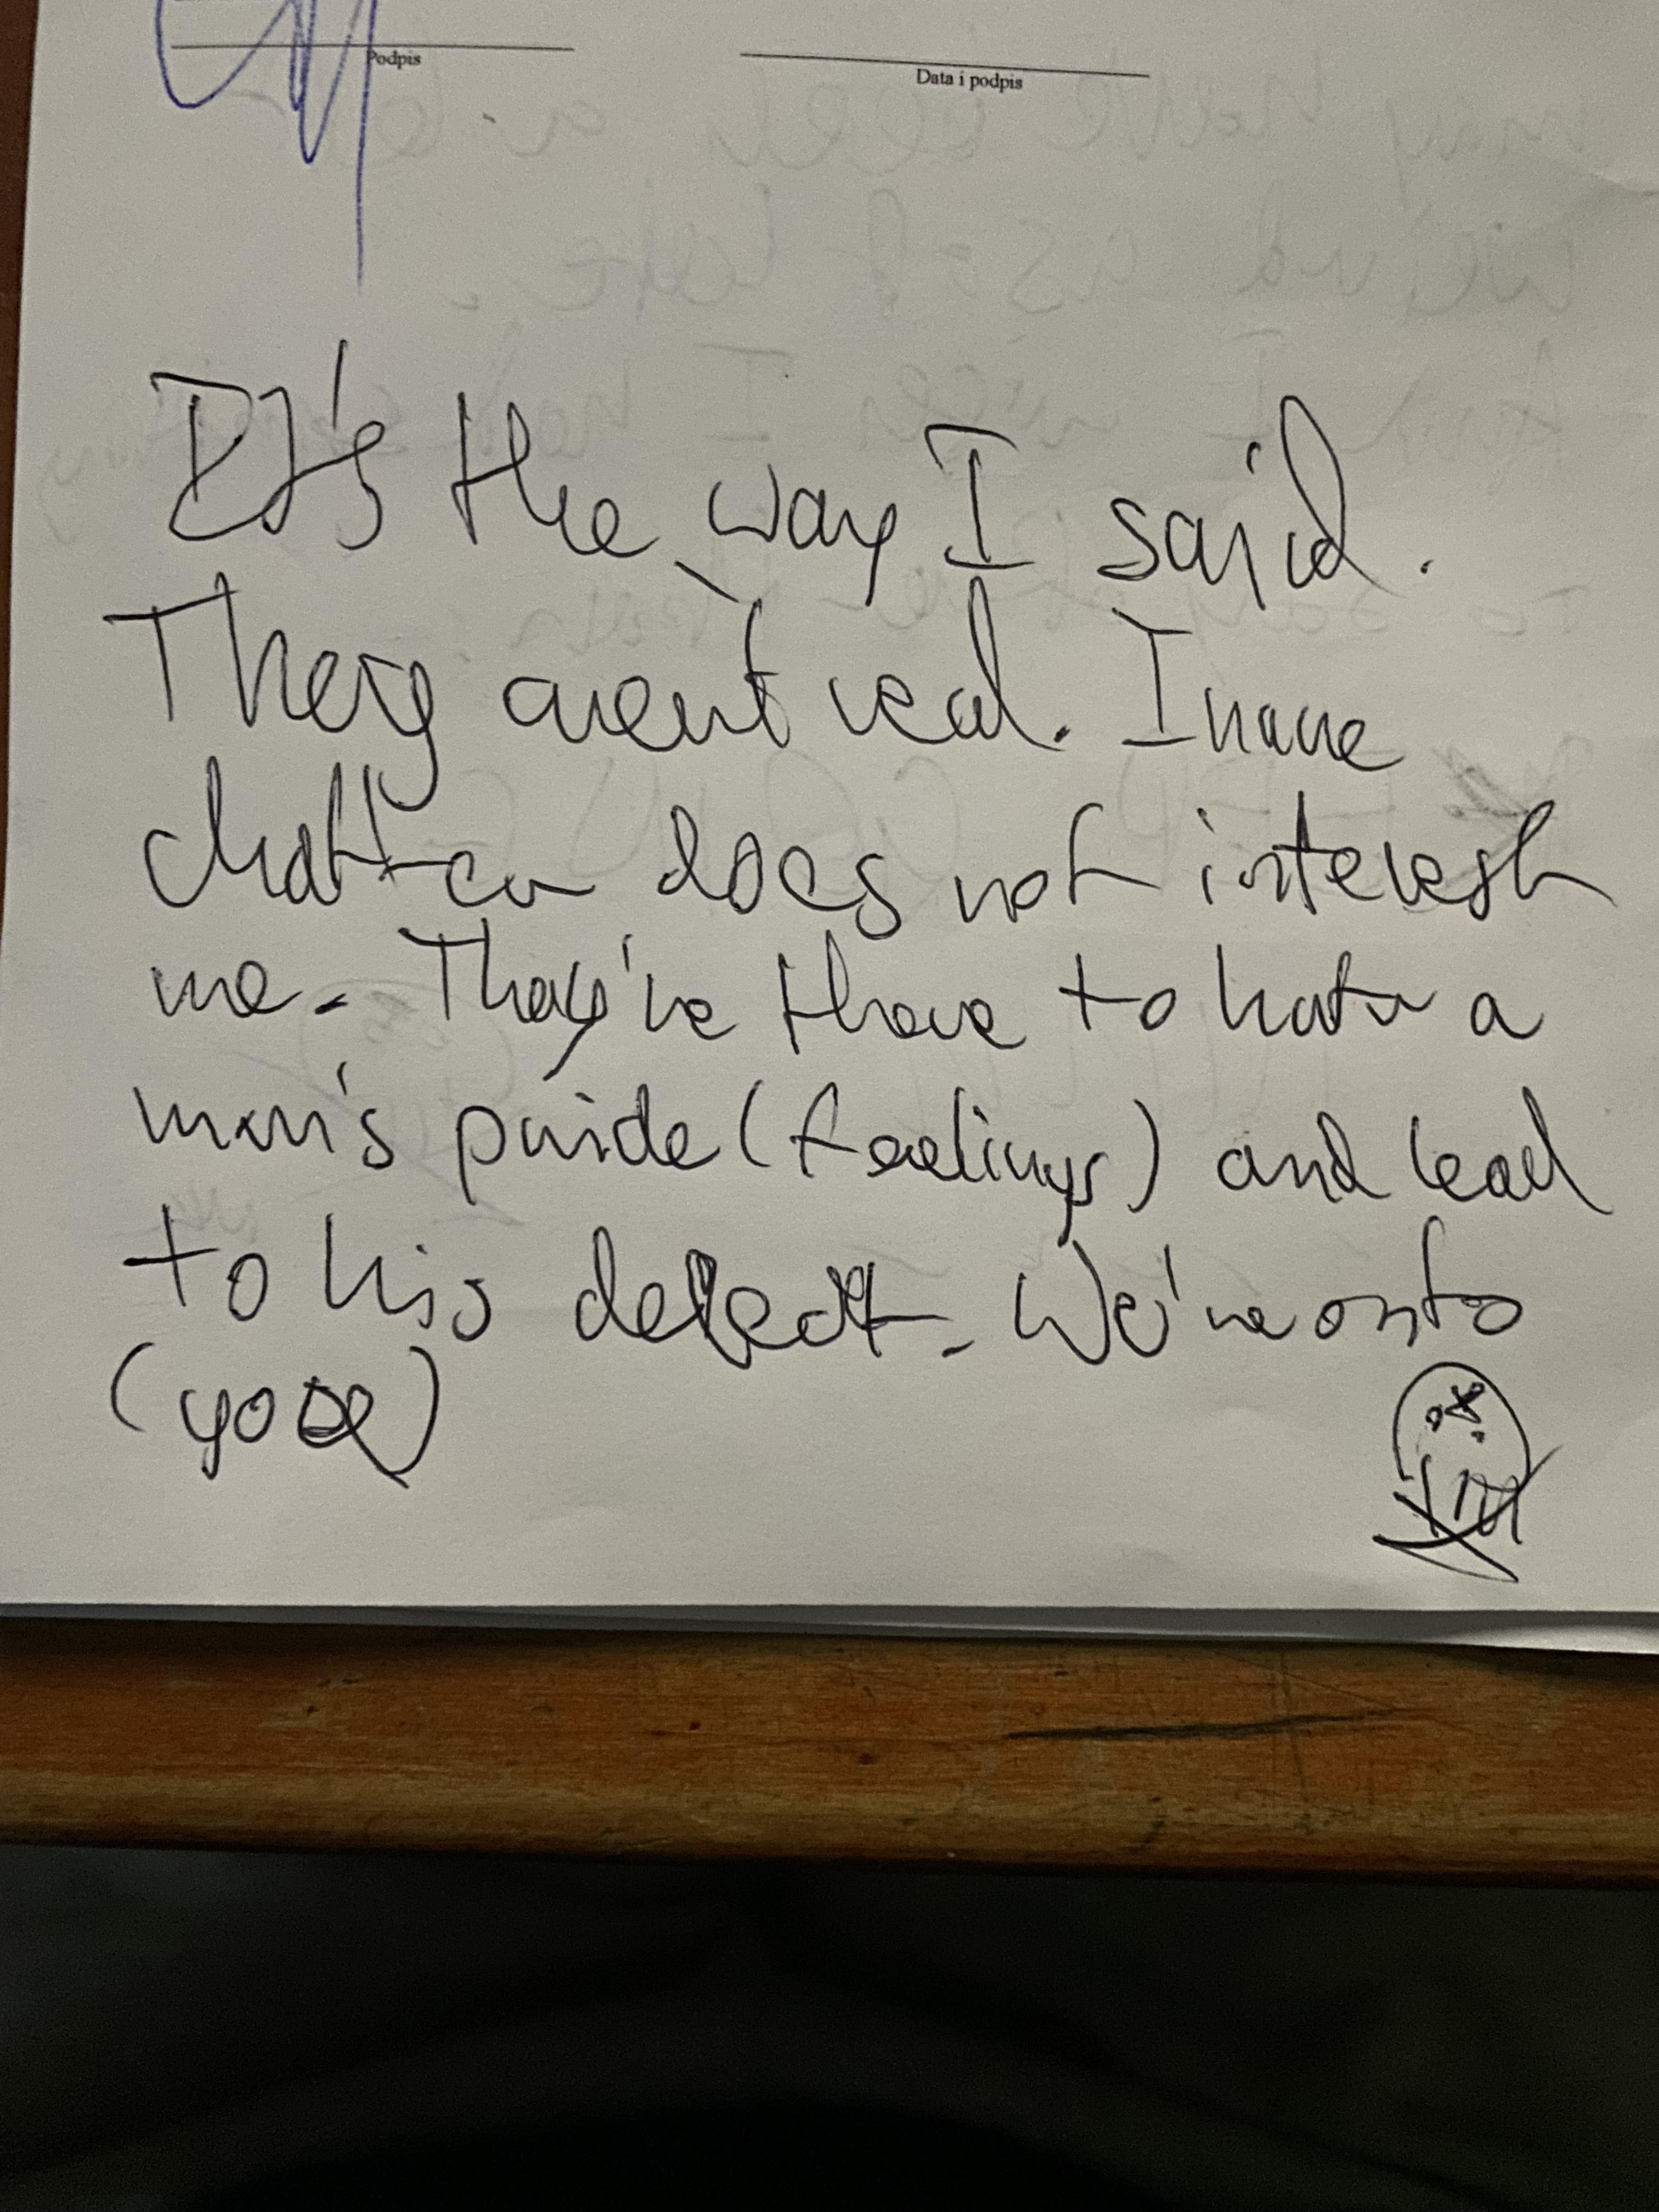 Podpis
Data i podpis
It's the way I said.
They aren't real. Inane
chatter does not interest
me. They're there to hate a
man's pride (feelings) and lead
to his defect. We're onto
(you)